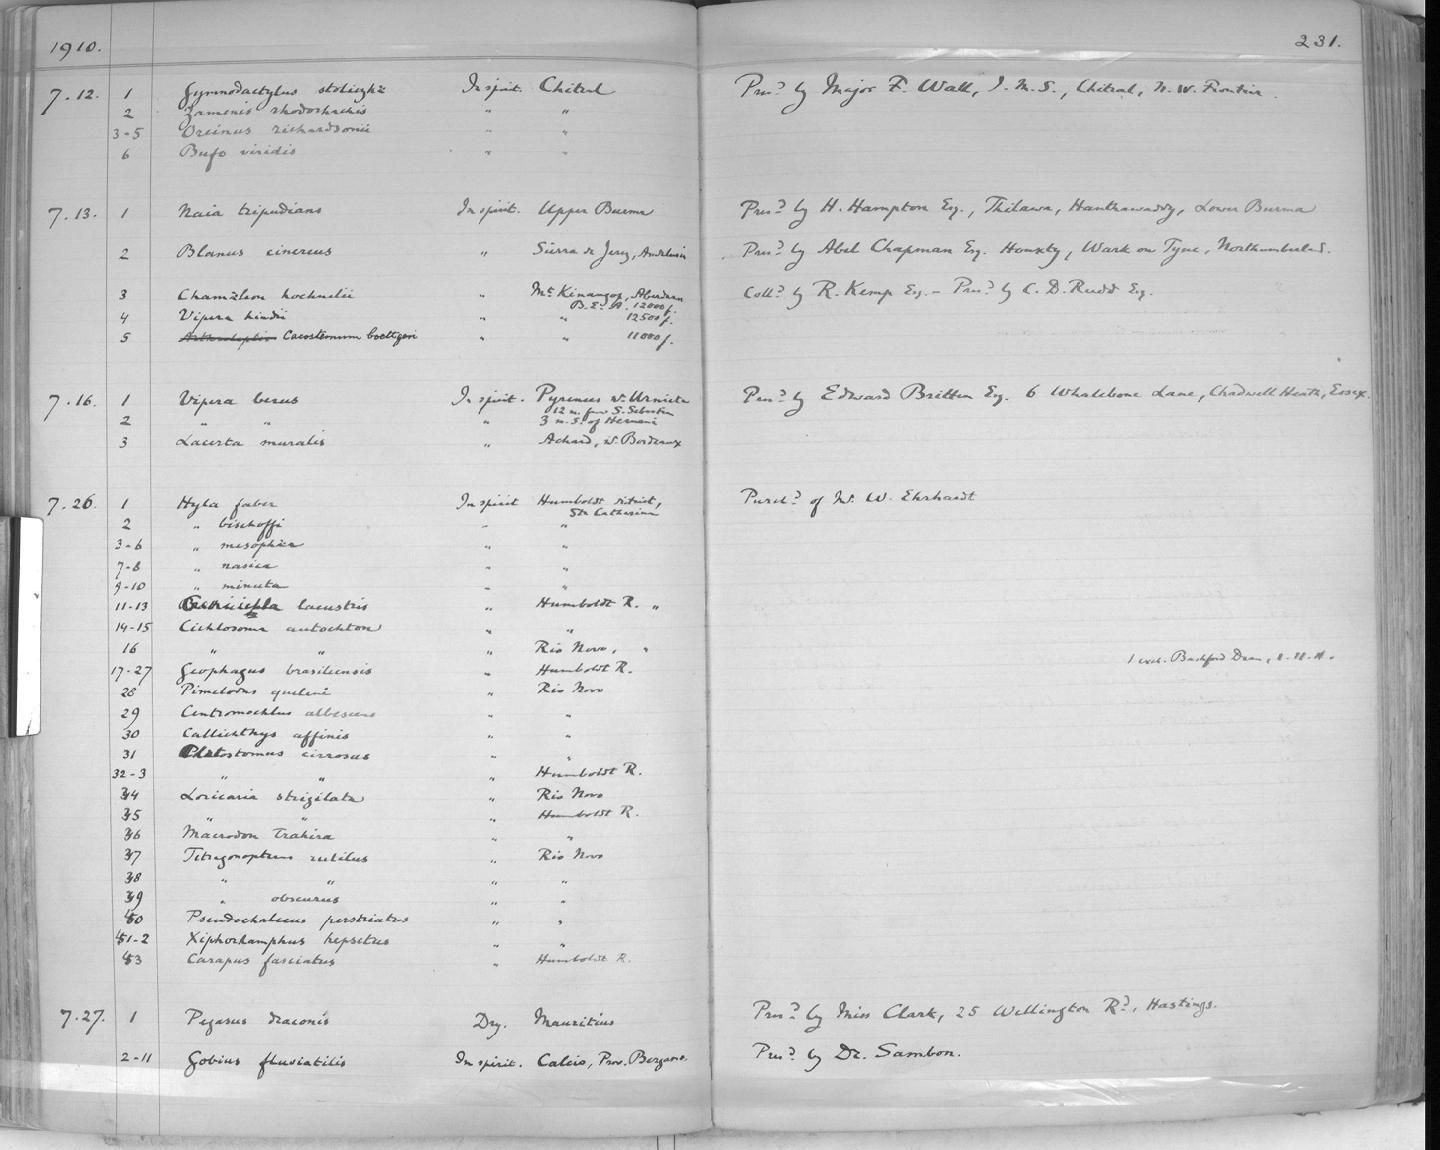 1910. 231.
7.12. 1 Gymnodactylus stoliczkæ In spirit. Chitral Pres.d by Major F. Wall, I.M.S., Chitral, N.W. Frontier.
2 Zamenis rhodorhachis " "
3-5 Oreinus richardsonii " "
6 Bufo viridis " "
7.13. 1 Naia tripudians In spirit. Upper Burma Pres.d by H. Hampton Esq., Thilawa, Hanthawaddy, Lower Burma
2 Blanus cinereus " Sierra de Jerez, Andalusia Pres.d by Abel Chapman Esq. Houxty, Wark on Tyne, Northumberld.
3 Chamæleon hoehnelii " Mt. Kinangop, Aberdare Coll.d by R. Kemp Esq. - Pres.d by C. D. Rudd Esq.
B.E. A. 12000 f.
4 Vipera hindii " " 12500 f.
5 Cacosternum boettgeri " " 11000 f.
7.16. 1 Vipera berus In spirit. Pyrenees nr. Urnieta Pres.d by Edward Britten Esq. 6 Whalebone Lane, Chadwell Heath, Essex.
12 m. from S. Sebastian
2 " " " 3 m. S. of Hernani
3 Lacerta muralis " Achard, nr. Bordeaux
7.26. 1 Hyla faber In spirit Humboldt district, Purch.d of Mr. W. Ehrhardt
Sta Catharina
2 " bischoffi " "
3-6 " mesophæa " "
7-8 " nasica " "
9-10 " minuta " "
11-13 lacustris " Humboldt R. "
14-15 Cichlosoma autochton " "
16 " " " Rio Novo, "
1 exch. Bashford Dean,
17-27 Geophagus brasiliensis " Humboldt R.
28 Pimelodus queleni " Rio Novo
29 Centromochlus albescens " "
30 Callichthys affinis " "
31 Plecostomus cirrosus " "
32-3 " " " Humboldt R.
34 Loricaria strigilata " Rio Novo
35 " " " Humboldt R.
36 Macrodon trahira " "
37 Tetragonopterus rutilus " Rio Novo
38 " " " "
39 " obscurus " "
40 Pseudochalceus perstriatus " "
41-2 Xiphorhamphus hepsetus " "
43 Carapus fasciatus " Humboldt R.
7.27. 1 Pegasus draconis Dry. Mauritius Pres.d by Miss Clark, 25 Wellington Rd., Hastings.
2-11 Gobius fluviatilis In spirit. Calcio, Prov. Bergamo. Pres.d by Dr. Sambon.